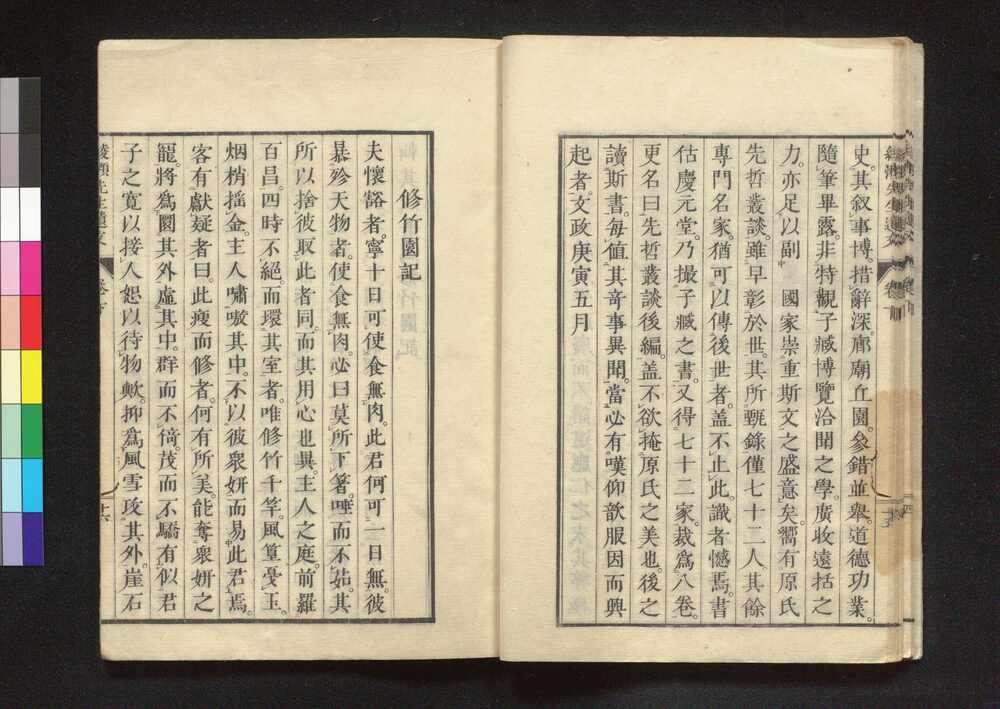 史。其叙事博。措辭深。廊廟丘園。參錯並舉。道德功業。
隨筆畢露。非特觀子臧博覽洽聞之學。廣收遠括之
力。亦足以副　國家崇重斯文之盛意矣。嚮有原氏
先哲叢談。雖早彰於世。其所甄錄僅七十二人。其餘
專門名家。猶可以傳後世者。盖不止此。識者憾焉。書
估慶元堂。乃撮子臧之書。又得七十二家。裁爲八卷。
更名曰先哲叢談後編。盖不欲掩原氏之美也。後之
讀斯書。每値其奇事異聞。當必有嘆仰歆服因而興
起者。文政庚寅五月
修竹園記
夫懷豁者。寧十日可使食無肉。此君何可一日無。彼
暴殄天物者。使食無肉。必曰莫所下箸。唾而不茹。其
所以捨彼取此者同。而其用心也異。主人之庭。前羅
百昌。四時不絕。而環其室者。唯修竹千竿。風篁戞玉。
烟梢搖金。主人嘯嗷其中。不以彼衆妍而易此君焉。
客有獻疑者曰。此瘦而修者。何有所美。能奪衆妍之
寵。將爲圓其外。虛其中。群而不倚。茂而不驕。有似君
子之寛以接人。恕以待物歟。抑爲風雪攻其外。崖石
綾瀬先生遺文　卷下　廿六